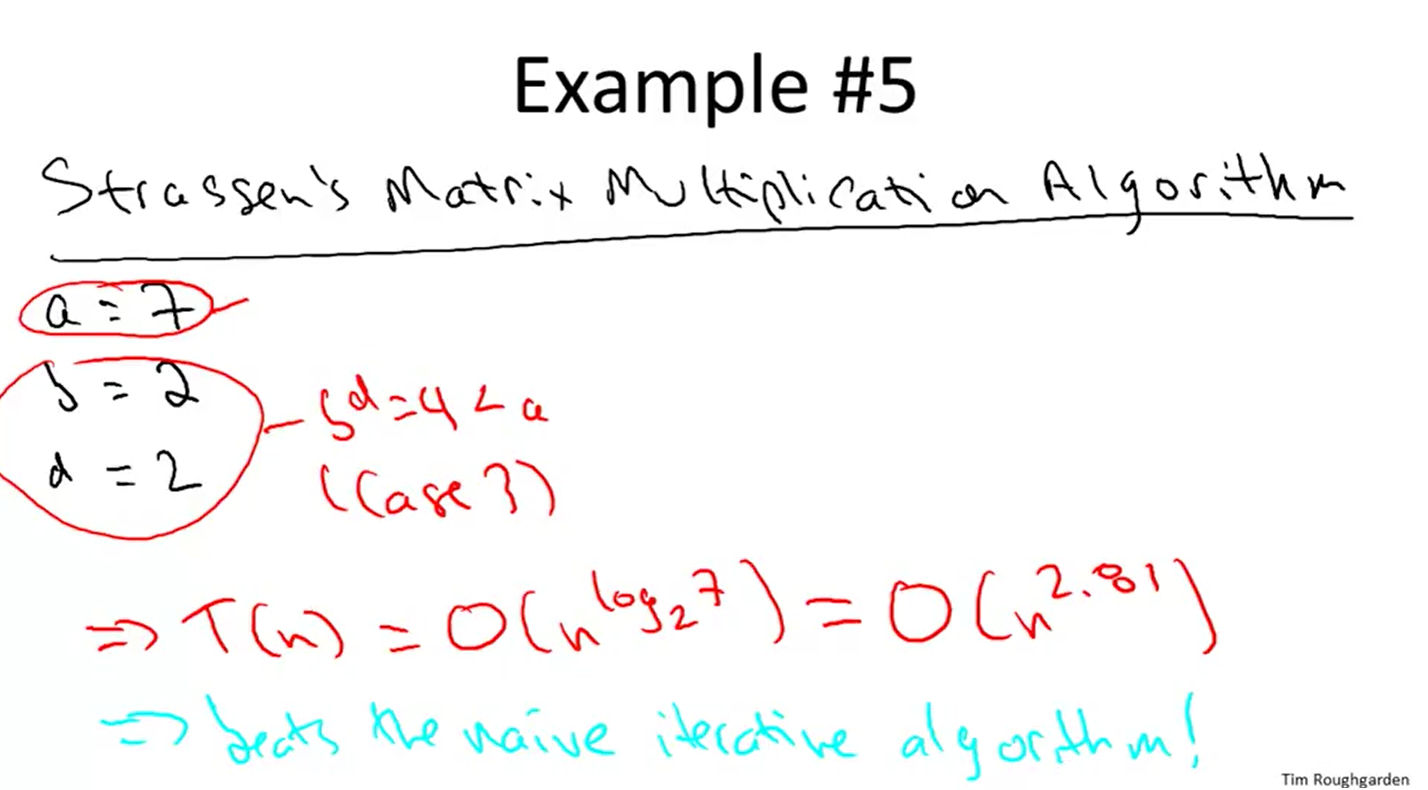 Example #5
Strassen's Matrix Multiplication Algorithm
a = 7
b = 2
d = 2
b^d = 4 < a
(Case 3)
=> T(n) = O(n^log_2 7) = O(n^2.81)
=> beats the naive iterative algorithm!
Tim Roughgarden